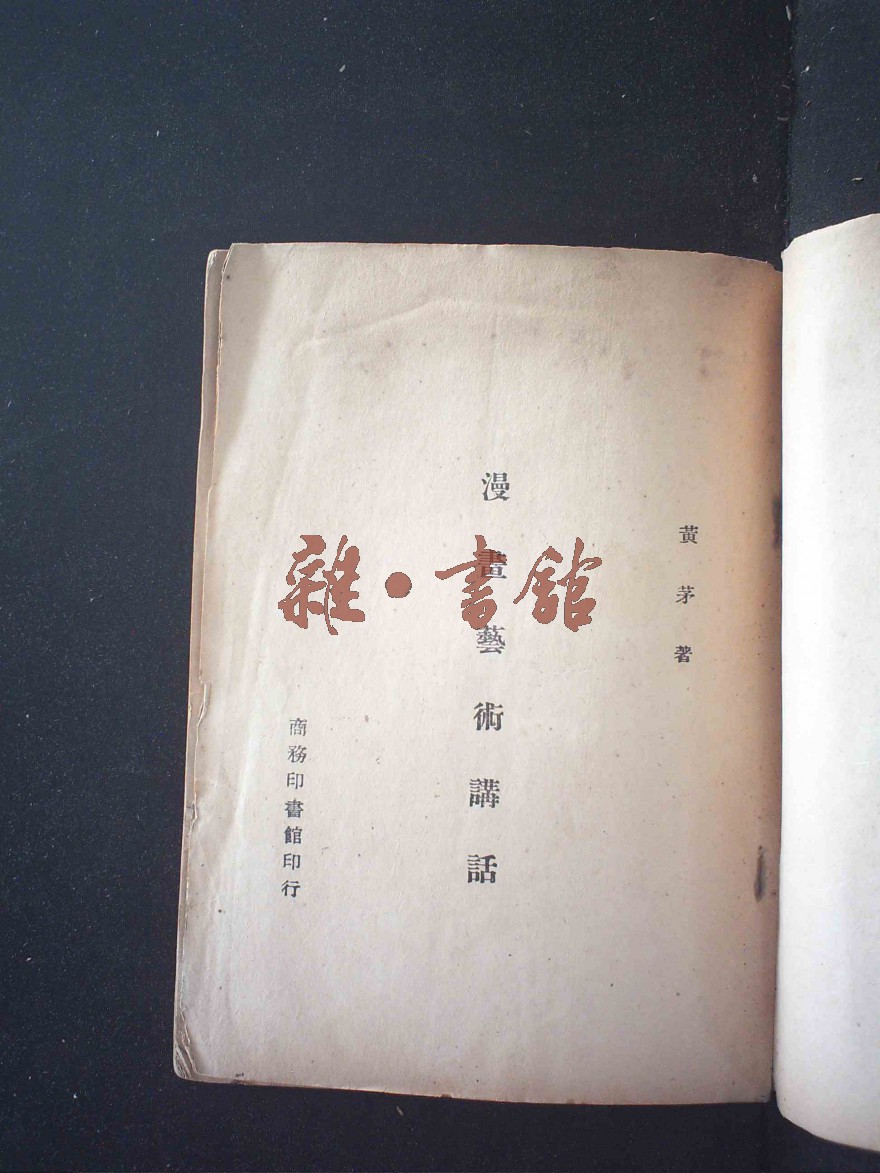 黃茅著
漫畫藝術講話
商務印書館印行
雜•書館